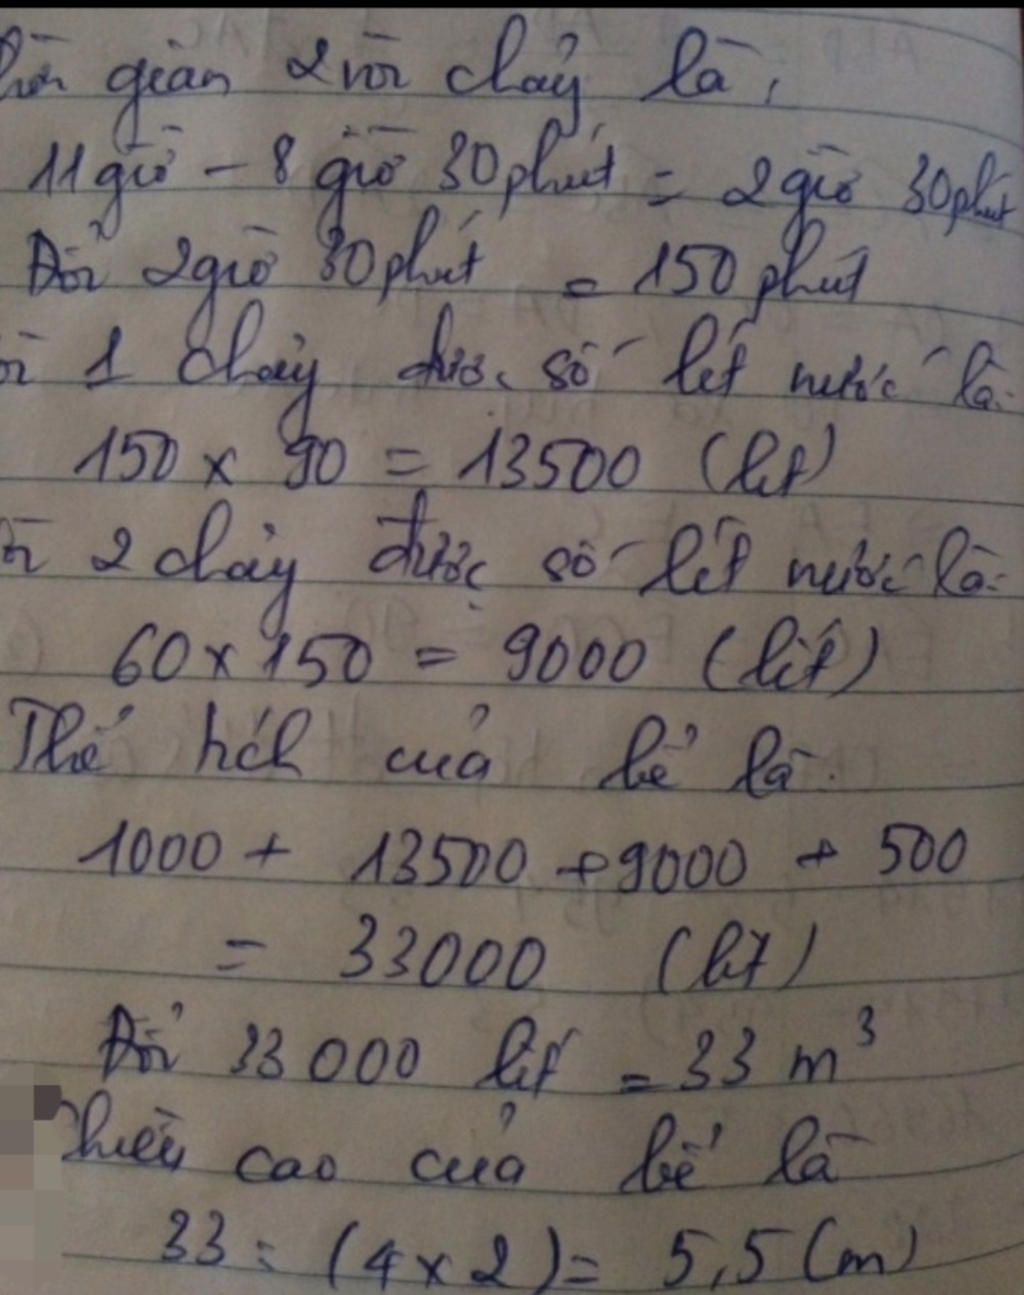 gian 2 vòi chảy là,
11 giờ - 8 giờ 30 phút = 2 giờ 30 phút
Đổi 2 giờ 30 phút = 150 phút
1 chảy được số lít nước là:
150 x 90 = 13500 (lít)
2 chảy được số lít nước là:
60 x 150 = 9000 (lít)
Thể hích của bể là.
1000 + 13500 + 9000 + 500
= 33000 (lít)
Đổi 33000 lít = 33 m³
Chiều cao của bể là
33 : (4 x 2) = 5,5 (m)